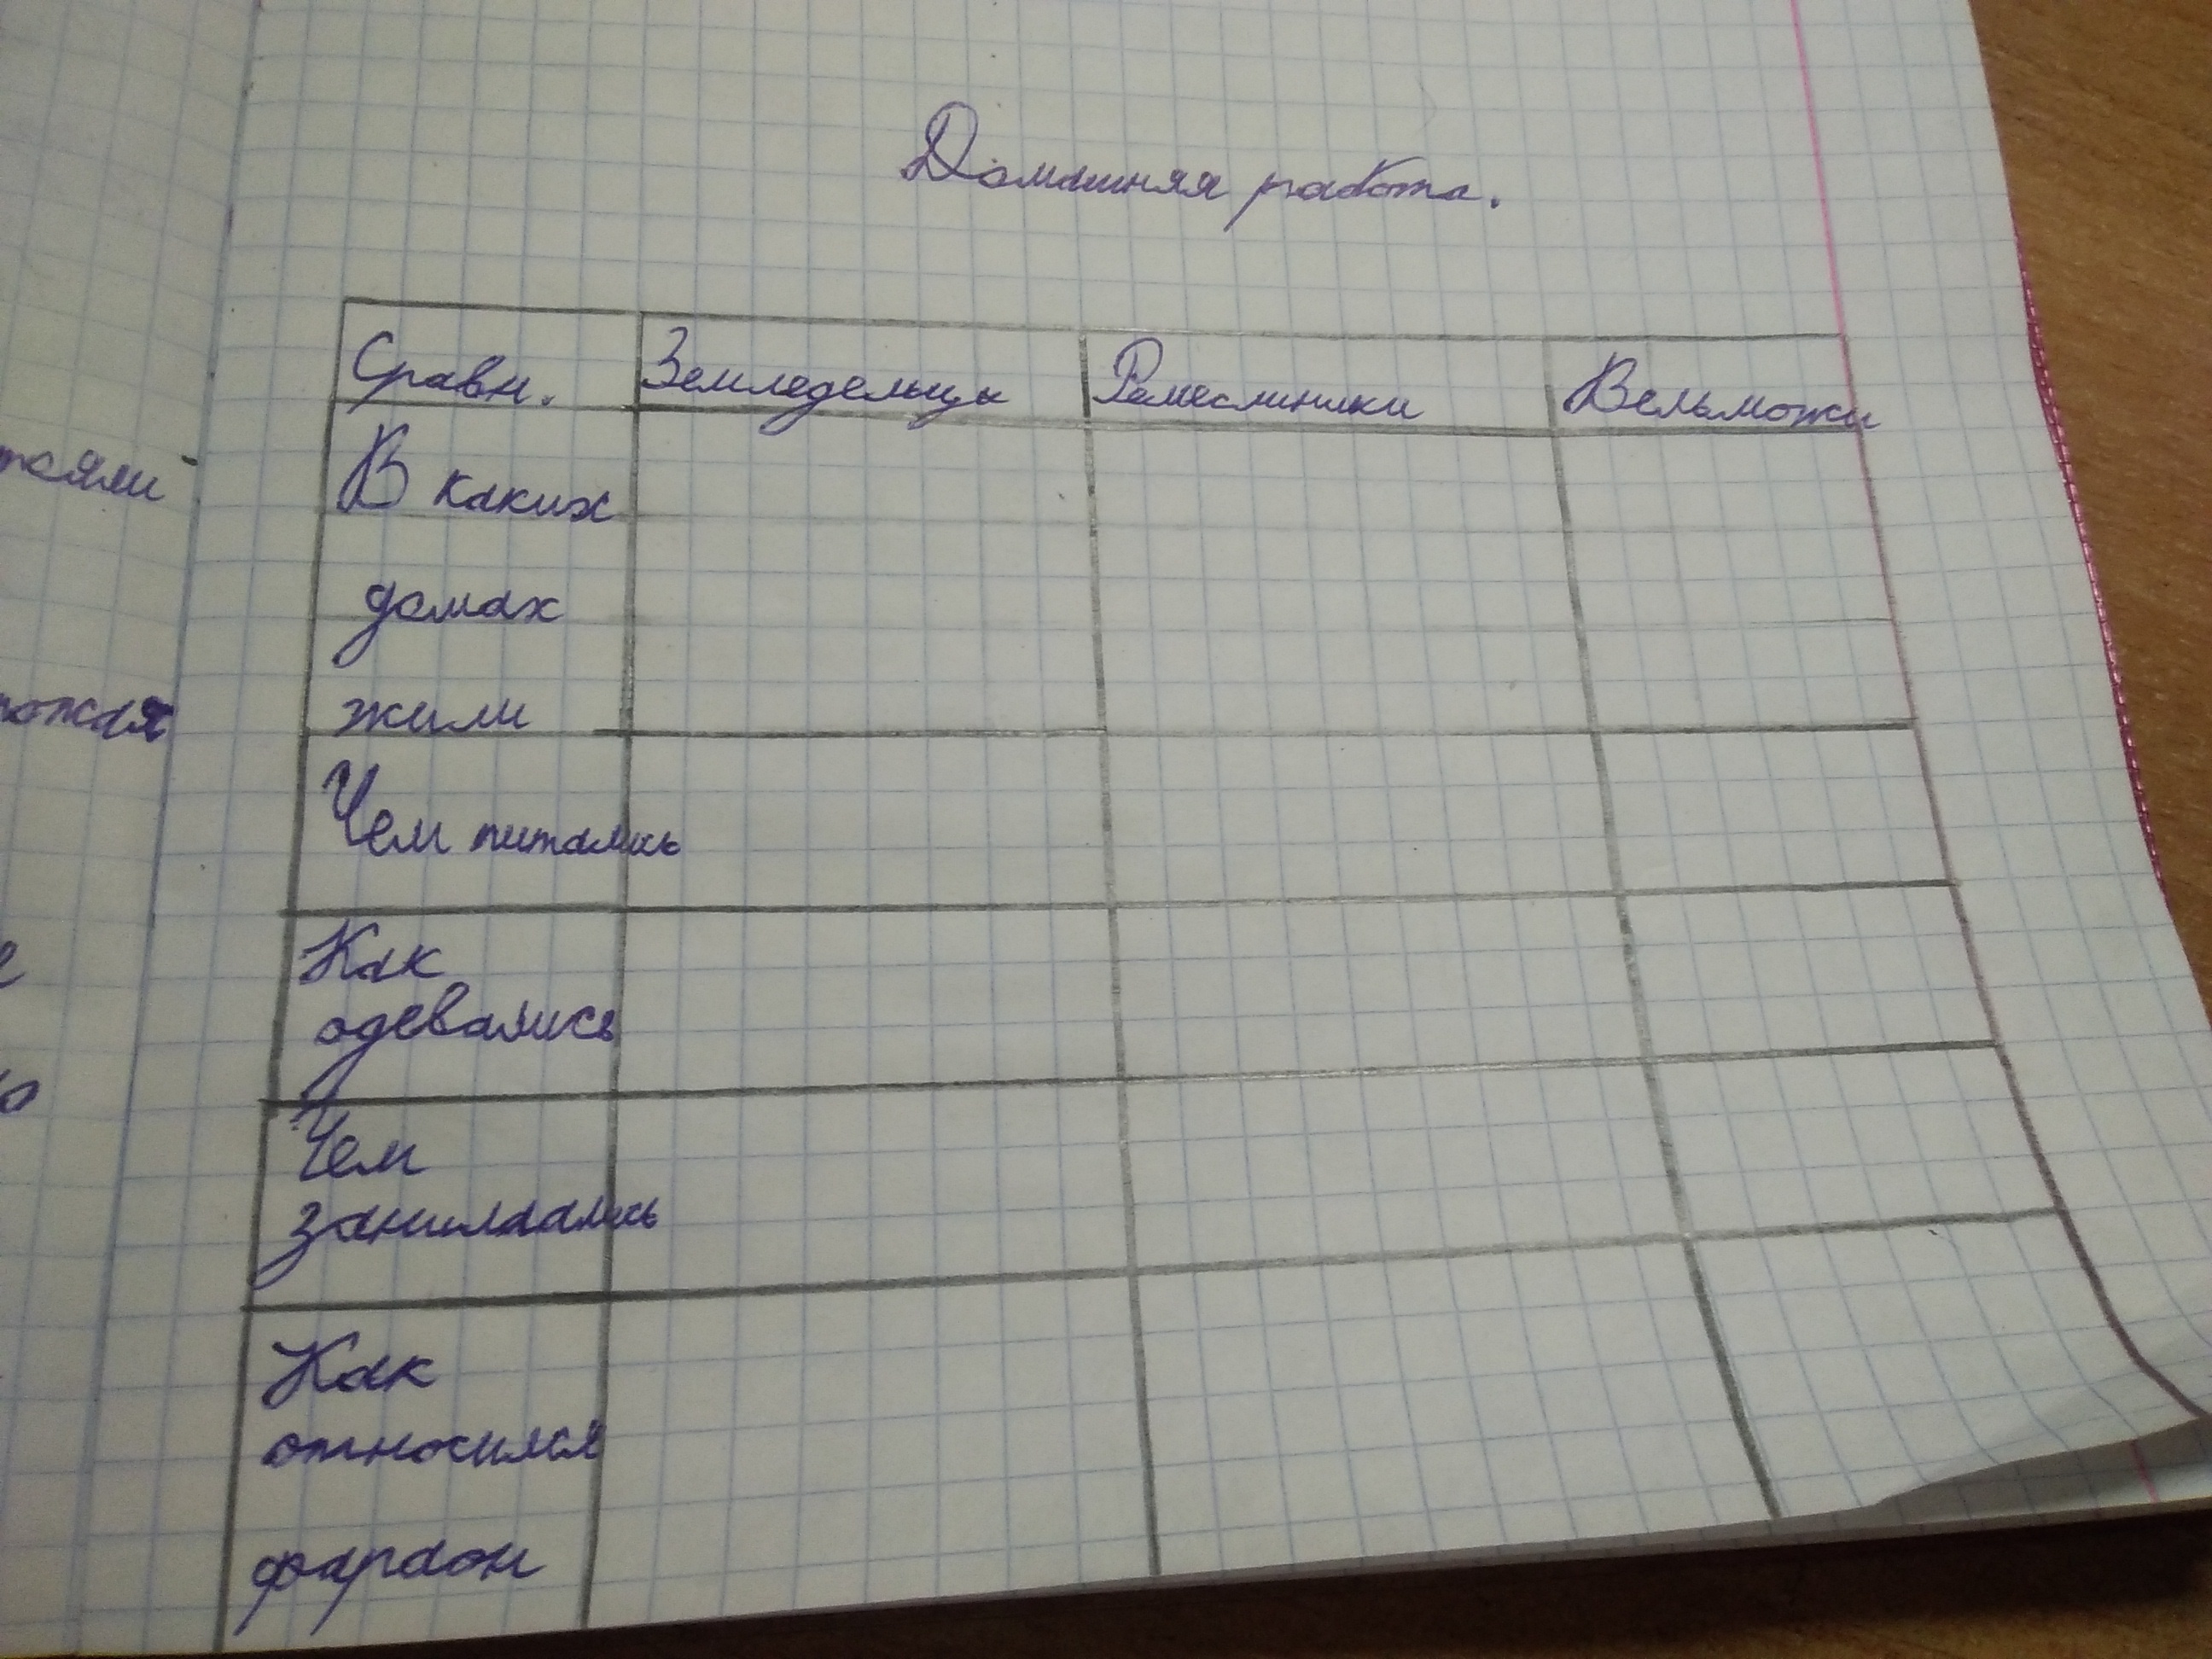 Домашняя работа.
Сравн. Земледельцы Ремесленики Вельможи
В каких
домах
жили
Чем питались
Как
одевались
Чем
занимались
Как
относился
фараон